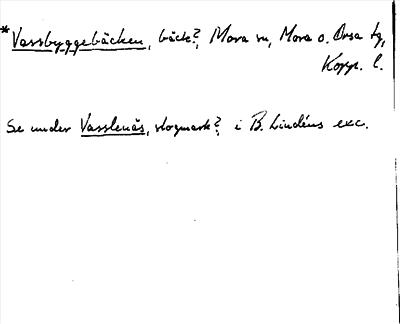 *Vassbyggebäcken, bäck?, Mora sn, Mora o. Orsa tg,
Kopp. l.
Se under Vasslenäs, skogmark? i B. Lindéns exc.